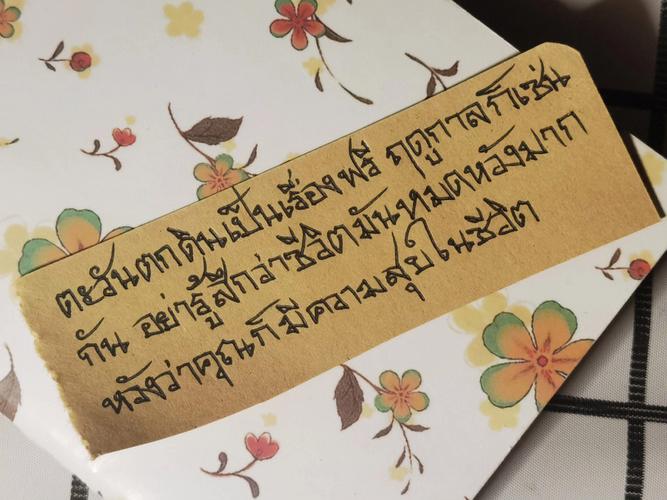 ตะวันตกดินเป็นเรื่องฟรี ฤดูกาลก็เช่น
กัน อย่ารู้สึกว่าชีวิตมันหมดหวังมาก
หวังว่าคุณก็มีความสุขในชีวิต